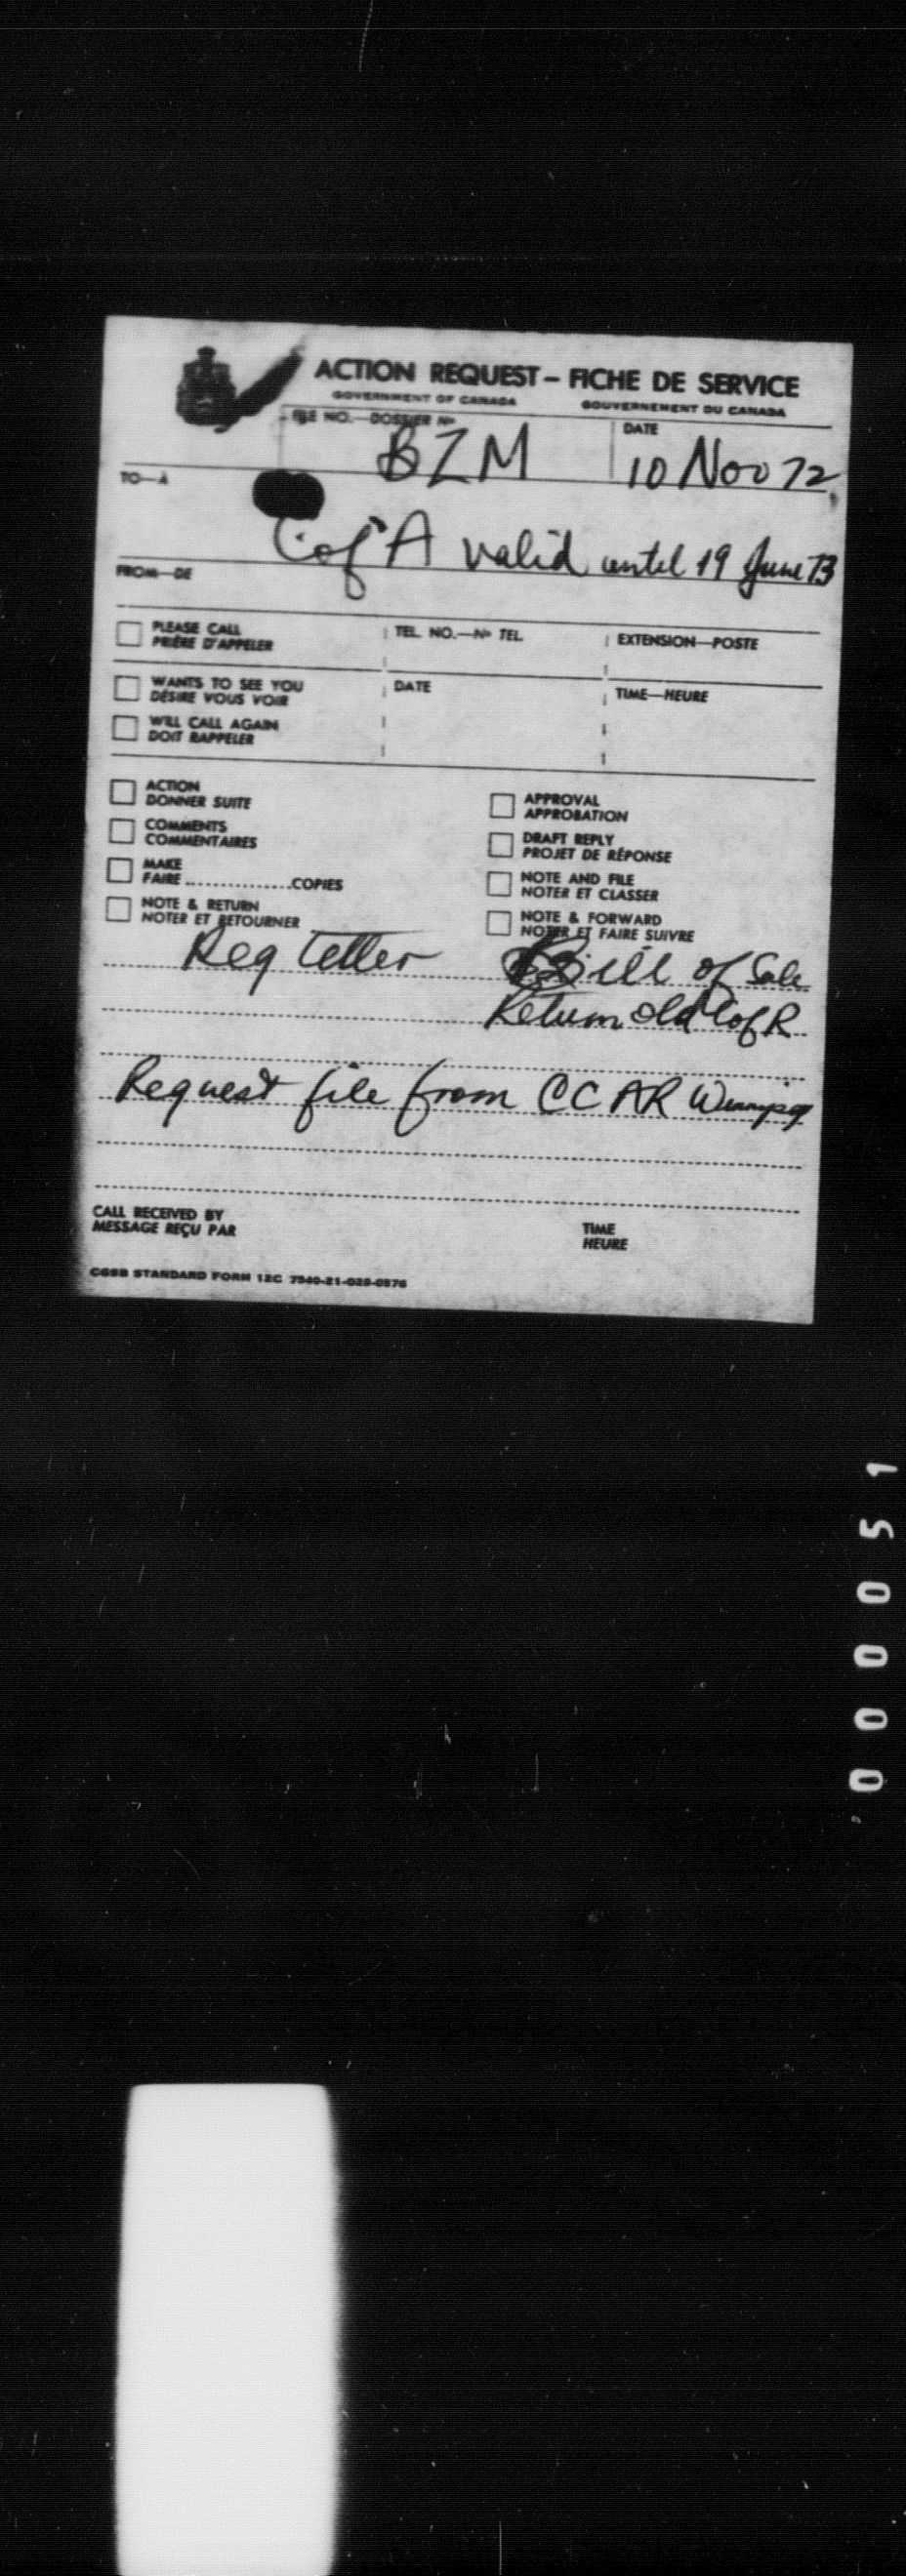 ACTION REQUEST – FICHE DE SERVICE
GOVERNMENT OF CANADA GOUVERNEMENT DU CANADA
FILE NO.—DOSSIER Nº DATE
BZM 10 Nov 72
TO—À
C of A valid until 19 June 73
FROM—DE
PLEASE CALL TEL. NO.—Nº TEL. EXTENSION—POSTE
PRIÈRE D'APPELER
WANTS TO SEE YOU DATE TIME—HEURE
DÉSIRE VOUS VOIR
WILL CALL AGAIN
DOIT RAPPELER
ACTION APPROVAL
DONNER SUITE APPROBATION
COMMENTS DRAFT REPLY
COMMENTAIRES PROJET DE RÉPONSE
MAKE NOTE AND FILE
FAIRE ............... COPIES NOTER ET CLASSER
NOTE & RETURN NOTE & FORWARD
NOTER ET RETOURNER NOTER ET FAIRE SUIVRE
Reg letter Bill of Sale
Return old C of R
Request file from CCAR Winnipeg
CALL RECEIVED BY TIME
MESSAGE REÇU PAR HEURE
CGSB STANDARD FORM 12C 7540-21-029-0576
000051